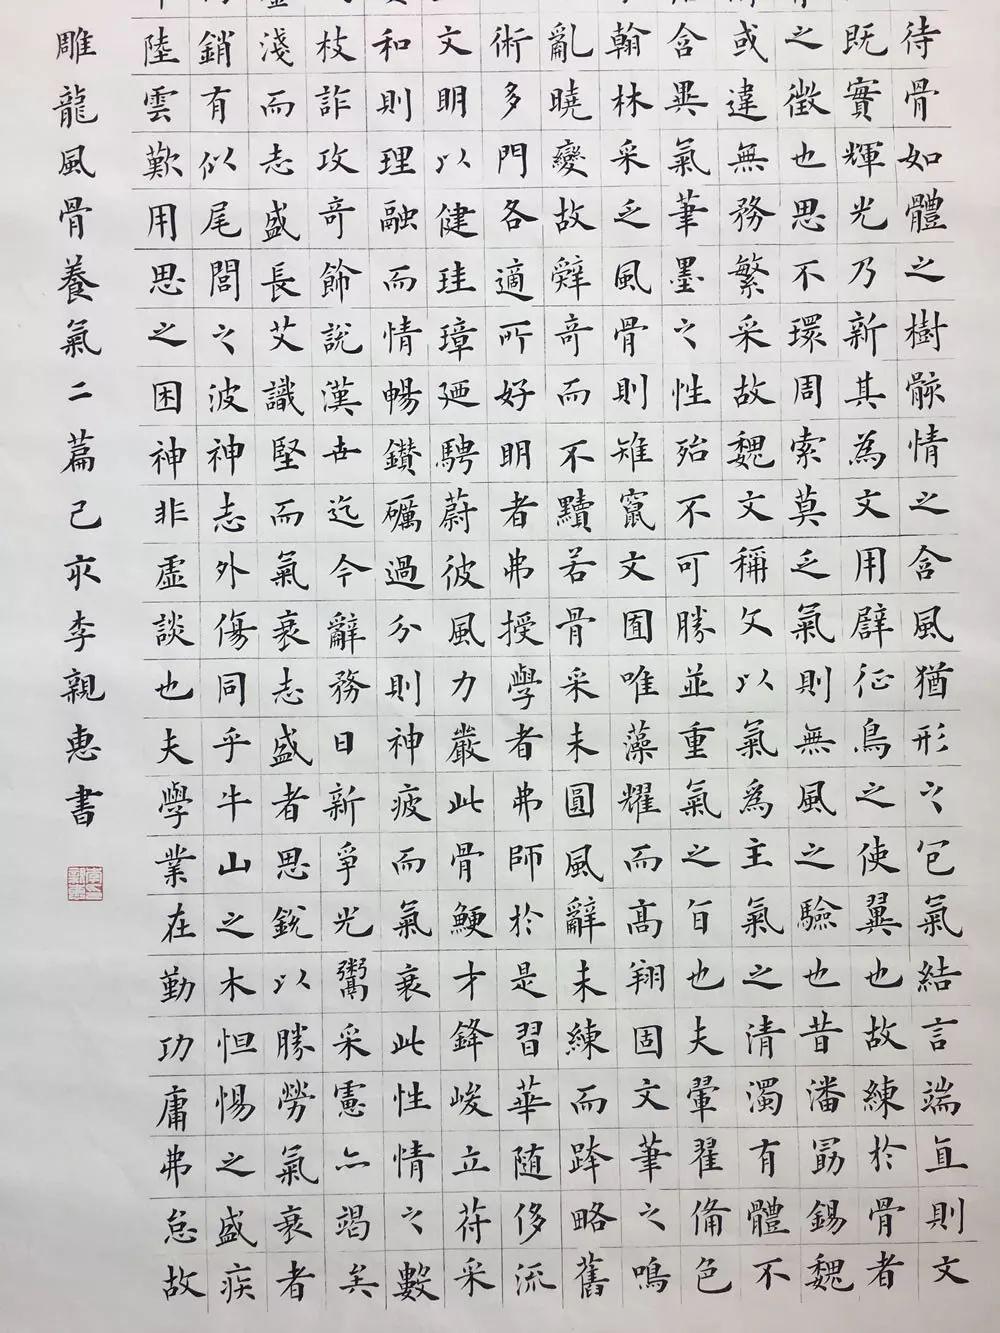 待骨如體之樹骸情之含風猶形之包氣結言端直則文
既實輝光乃新其為文用辟征鳥之使翼也故練於骨者
之徵也思不環周索莫乏氣則無風之驗也昔潘勗錫魏
或違無務繁采故魏文稱文以氣為主氣之清濁有體不
含異氣筆墨之性殆不可勝並重氣之旨也夫翬翟備色
翰林采乏風骨則雉竄文囿唯藻耀而高翔固文筆之鳴
亂曉變故辭奇而不黷若骨采未圓風辭未練而跨略舊
術多門各適所好明者弗授學者弗師於是習華随侈流
文明以健珪璋廼騁蔚彼風力嚴此骨鯁才鋒峻立苻采
和則理融而情暢鑽礪過分則神疲而氣衰此性情之數
枝詐攻奇飾說漢世迄今辭務日新爭光鬻采慮亦竭矣
淺而志盛長艾識堅而氣衰志盛者思銳以勝勞氣衰者
銷有似尾閭之波神志外傷同乎牛山之木怛惕之盛疾
陸雲歎用思之困神非虛談也夫學業在勤功庸弗怠故
雕龍風骨養氣二篇己亥李親惠書